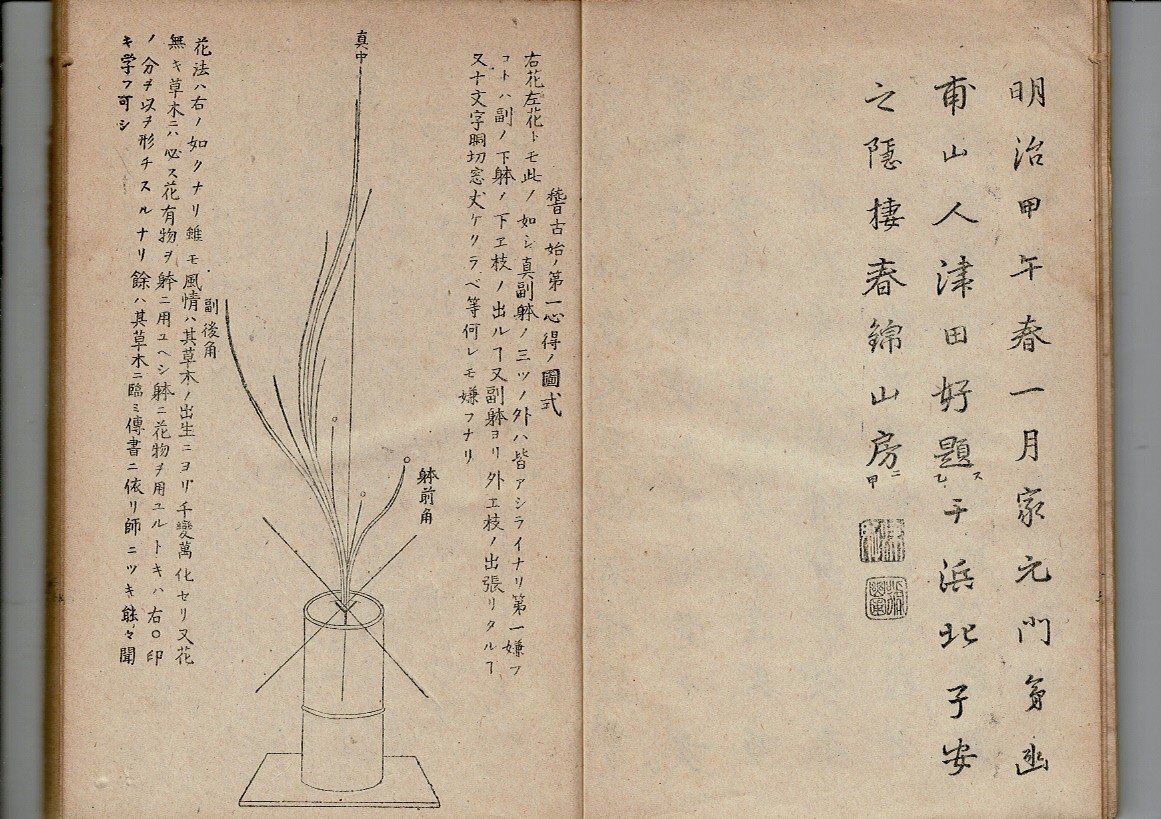 明治甲午春一月家元門弟幽
甫山人津田好題ス于浜北子安
之隠棲春錦山房ニ
稽古始ノ第一心得ノ圖式
右花左花トモ此ノ如シ真副躰ノ三ツノ外ハ皆アシライナリ第一嫌フ
コトハ副ノ下躰ノ下エ枝ノ出ルヿ又副躰ヨリ外エ枝ノ出張リタルヿ
又十文字胴切窓丈ケクラベ等何レモ嫌フナリ
真中
躰前角
副後角
花法ハ右ノ如クナリ雖モ風情ハ其草木ノ出生ニヨリ千變萬化セリ又花
無キ草木ニハ必ス花有物ヲ躰ニ用ユヘシ躰ニ花物ヲ用ユルトキハ右〇印
ノ分ヲ以ヲ形チスルナリ餘ハ其草木ニ臨ミ傳書ニ依リ師ニツキ能々聞
キ学フ可シ